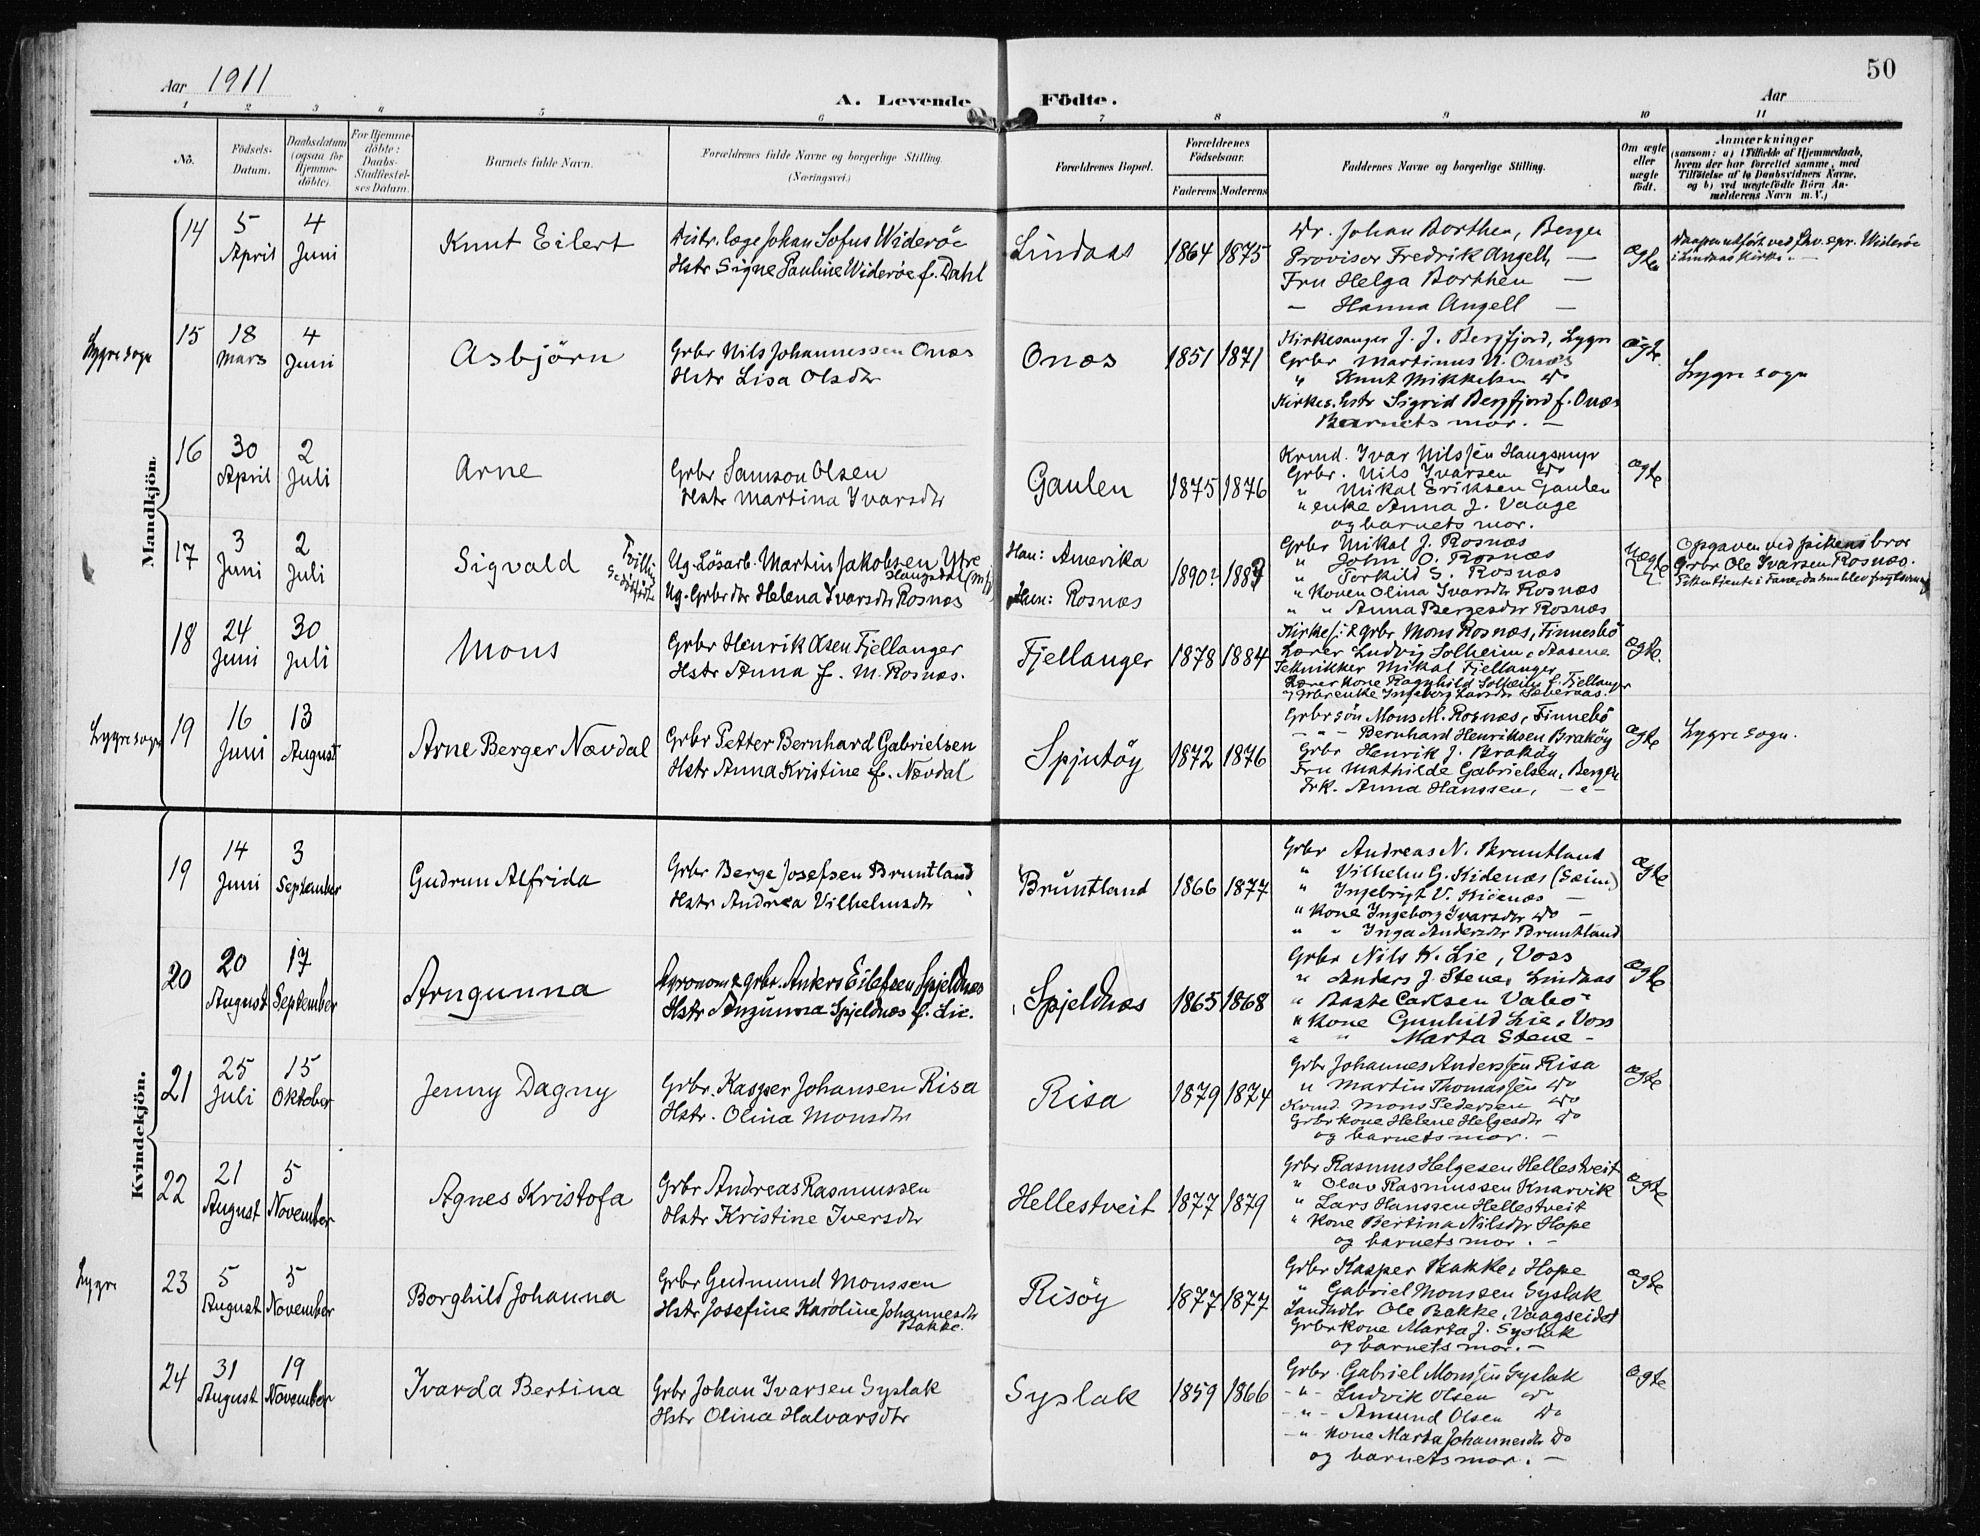 50
Aar 1911
A. Levende Födte.
Aar
1 2 3 4 5 6 7 8 9 10 11
No.
Födsels-Datum.
Daabsdatum (ogsaa for Hjemme-döbte).
For Hjemme-döbte: Daabs-Stadfæstel-ses Datum.
Barnets fulde Navn.
Forældrenes fulde Navne og borgerlige Stilling. (Næringsvei.)
Forældrenes Bopæl.
Forældrenes Födselsaar.
Faderens Moderens
Faddernes Navne og borgerlige Stilling.
Om ægte eller uægte födt.
Anmærkninger
(saasom: a) i Tilfælde af Hjemmedaab, hvem der har forrettet samme, med Tilföielse af to Daabsvidners Navne, og b) ved uægtefödte Börn An-melderens Navn m. V.)
Mandkjön.
14
5 April
4 Juni
Knut Eilert
Distr. læge Johan Sofus Wideröe
Hstr Signe Pauline Wideröe f. Dahl
Lindaas
1864 1875
Dr. Johan Borthen, Bergen
Provisor Fredrik Angell, —
Fru Helga Borthen —
— Hanna Angell —
Ægte
i Lindaas Kirke. —
Lygre sogn
15
18 Mars
4 Juni
Asbjörn
Grbr Nils Johannessen Onæs
Hstr Lisa Olsdtr
Onæs
1851 1871
Kirkesanger J. J. Bergfjord, Lygre
Grbr Martinus N. Onæs
" Knut Mikkelsen do
Kirkes. Hstr Sigrid Bergfjord f. Onæs
Barnets mor. —
Ægte
Lygre sogn
16
30 April
2 Juli
Arne
Grbr Samson Olsen
Hstr Martina Ivarsdtr
Gaulen
1875 1876
Krmd. Ivar Nilssen Haugsmyr
Grbr. Nils Ivarsen do
" Mikal Eriksen Gaulen
" enke Anna J. Vaage
og barnets mor.
Ægte
17
3 Juni
2 Juli
Sigvald
Ug. Lösarb. Martin Jakobsen Ytre
Haugsdal
Ug. Grbr dtr Helena Ivarsdtr Rosnæs
Han: Amerika
Hun: Rosnæs
1890? 1883
Grbr Mikal J. Rosnæs
" John O. Rosnæs
" Torkild S. Rosnæs
" Konen Olina Ivarsdtr Rosnæs
" " Anna Bergesdtr Rosnæs
Uægte
Opgaven ved pikens bror
Grbr Ole Ivarsen Rosnæs.
18
24 Juni
30 Juli
Mons
Grbr Henrik Olsen Fjellanger
Hstr Anna f. M. Rosnæs.
Fjellanger
1878 1884
Kirkes: & grbr Mons Rosnæs, Finnesbö
Lærer Ludvig Solheim, Aasene
Tekniker Mikal Fjellanger
Lærer Kone Ragnhild Solheim f. Fjellanger
Grbr enke Ingeborg Larsdtr Sævernaas.
Ægte.
Lygre sogn
19
16 Juni
13 August
Arne Berger Nævdal
Grbr Petter Bernhard Gabrielsen
Hstr Anna Kristine f. Nævdal
Spjutöy
1872 1876
Grbr sön Mons M. Rosnæs, Finnebö
- " - Bernhard Henriksen Braköy
Grbr Henrik J. Braköy
Fru Mathilde Gabrielsen, Bergen
Frk. Anna Hanssen, - " -
Ægte
Lygre sogn.
Kvindekjön.
19
14 Juni
3 September
Gudrun Alfrida
Grbr Berge Josefsen Bruntland
Hstr Andrea Vilhelmsdtr
Bruntland
1866 1877
Grbr Andreas N. Bruntland
" Vilhelm G. Kidenæs (Seim)
" Ingebrigt V. Kidenæs —
" Kone Ingeborg Ivarsdtr do —
" " Inga Andersdtr Bruntland
Ægte
20
20 August
17 September
Arngunna
Agronom & grbr. Ankers Eilefsen Spjeldnæs
Hstr Arngunna Spjeldnæs f. Lie.
Spjeldnæs
1865 1868
Grbr Nils K. Lie, Voss
" Anders J. Stene, Lindaas
" Baste Carlsen Valvö
" Kone Gunhild Lie, Voss
" " Marta Stene -
Ægte
21
25 Juli
15 Oktober
Jenny Dagny
Grbr. Kasper Johansen Risa
Hstr. Olina Monsdtr
Risa
1879 1874
Grbr Johannes Anderssen Risa
" Martin Thomassen do
Krmd. Mons Pedersen do
Grbr kone Helene Helgesdtr do
og barnets mor. —
Ægte
22
21 August
5 November
Agnes Kristofa
Grbr Andreas Rasmussen
Hstr Kristine Iversdtr
Hellestveit
1877 1879
Grbr Rasmus Helgesen Hellestveit
" Olav Rasmussen Knarvik
" Lars Hanssen Hellestveit
" Kone Bertina Nilsdtr Hope
og barnets mor. —
Ægte
Lygre
23
5 August
5 November
Borghild Johanna
Grbr Gudmund Monssen
Hstr Josefine Karoline Johannesdtr
Bakke.
Risöy
1877 1877
Grbr Kasper Bakke, Hope
" Gabriel Monssen Syslak
Landhdlr Ole Bakke, Vaagseidet
Grbr kone Marta J. Syslak
og barnets mor. —
Ægte
24
31 August
19 November
Ivarda Bertina
Grbr Johan Ivarsen Syslak
Hstr Olina Halvarsdtr
Syslak
1859 1866
Grbr Gabriel Monssen Syslak
- " - Ludvik Olsen do
- " - Amund Olsen do
- " Kone Marta Johannesdtr do
og barnets mor. —
Ægte